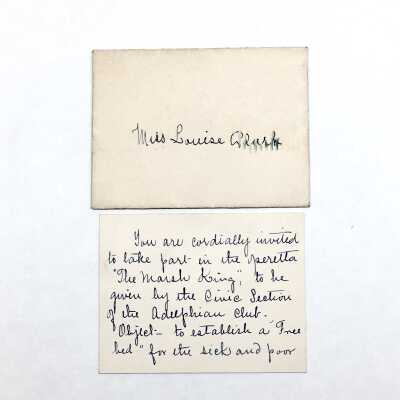 Miss Louise
You are cordially invited
to take part in the operetta
"The Marsh King", to be
given by the Civic Section
of the Adelphian Club.
"Object - to establish a "Free
bed" for the sick and poor